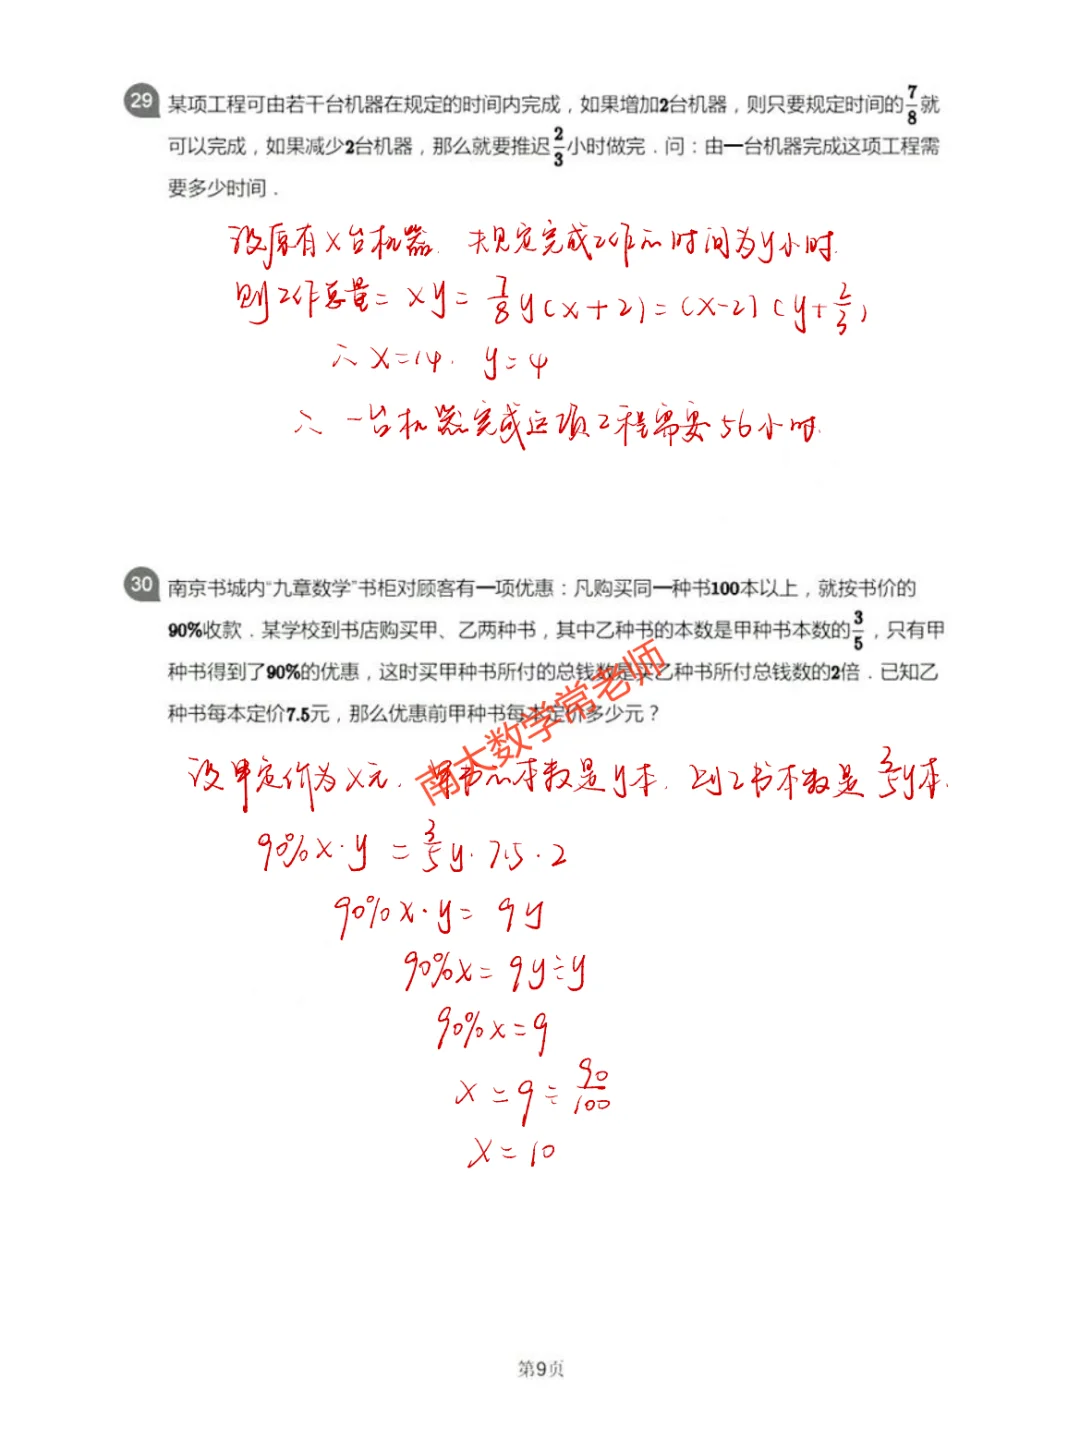 29 某项工程可由若干台机器在规定的时间内完成，如果增加2台机器，则只要规定时间的7/8就
可以完成，如果减少2台机器，那么就要推迟2/3小时做完．问：由一台机器完成这项工程需
要多少时间．
设原有x台机器．规定完成工作的时间为y小时．
则工作总量= xy = 7/8 y(x+2) = (x-2)(y+2/3)
∴ x=14. y=4
∴ 一台机器完成这项工程需要56小时．
30 南京书城内“九章数学”书柜对顾客有一项优惠：凡购买同一种书100本以上，就按书价的
90%收款．某学校到书店购买甲、乙两种书，其中乙种书的本数是甲种书本数的3/5，只有甲
种书得到了90%的优惠，这时买甲种书所付的总钱数是买乙种书所付总钱数的2倍．已知乙
种书每本定价7.5元，那么优惠前甲种书每本定价多少元？
南大数学常老师
设甲定价为x元．甲书的本数是y本．则乙书本数是3/5y本．
90%x·y = 3/5y·7.5·2
90%x·y = 9y
90%x = 9y÷y
90%x = 9
x = 9 ÷ 90/100
x = 10
第9页